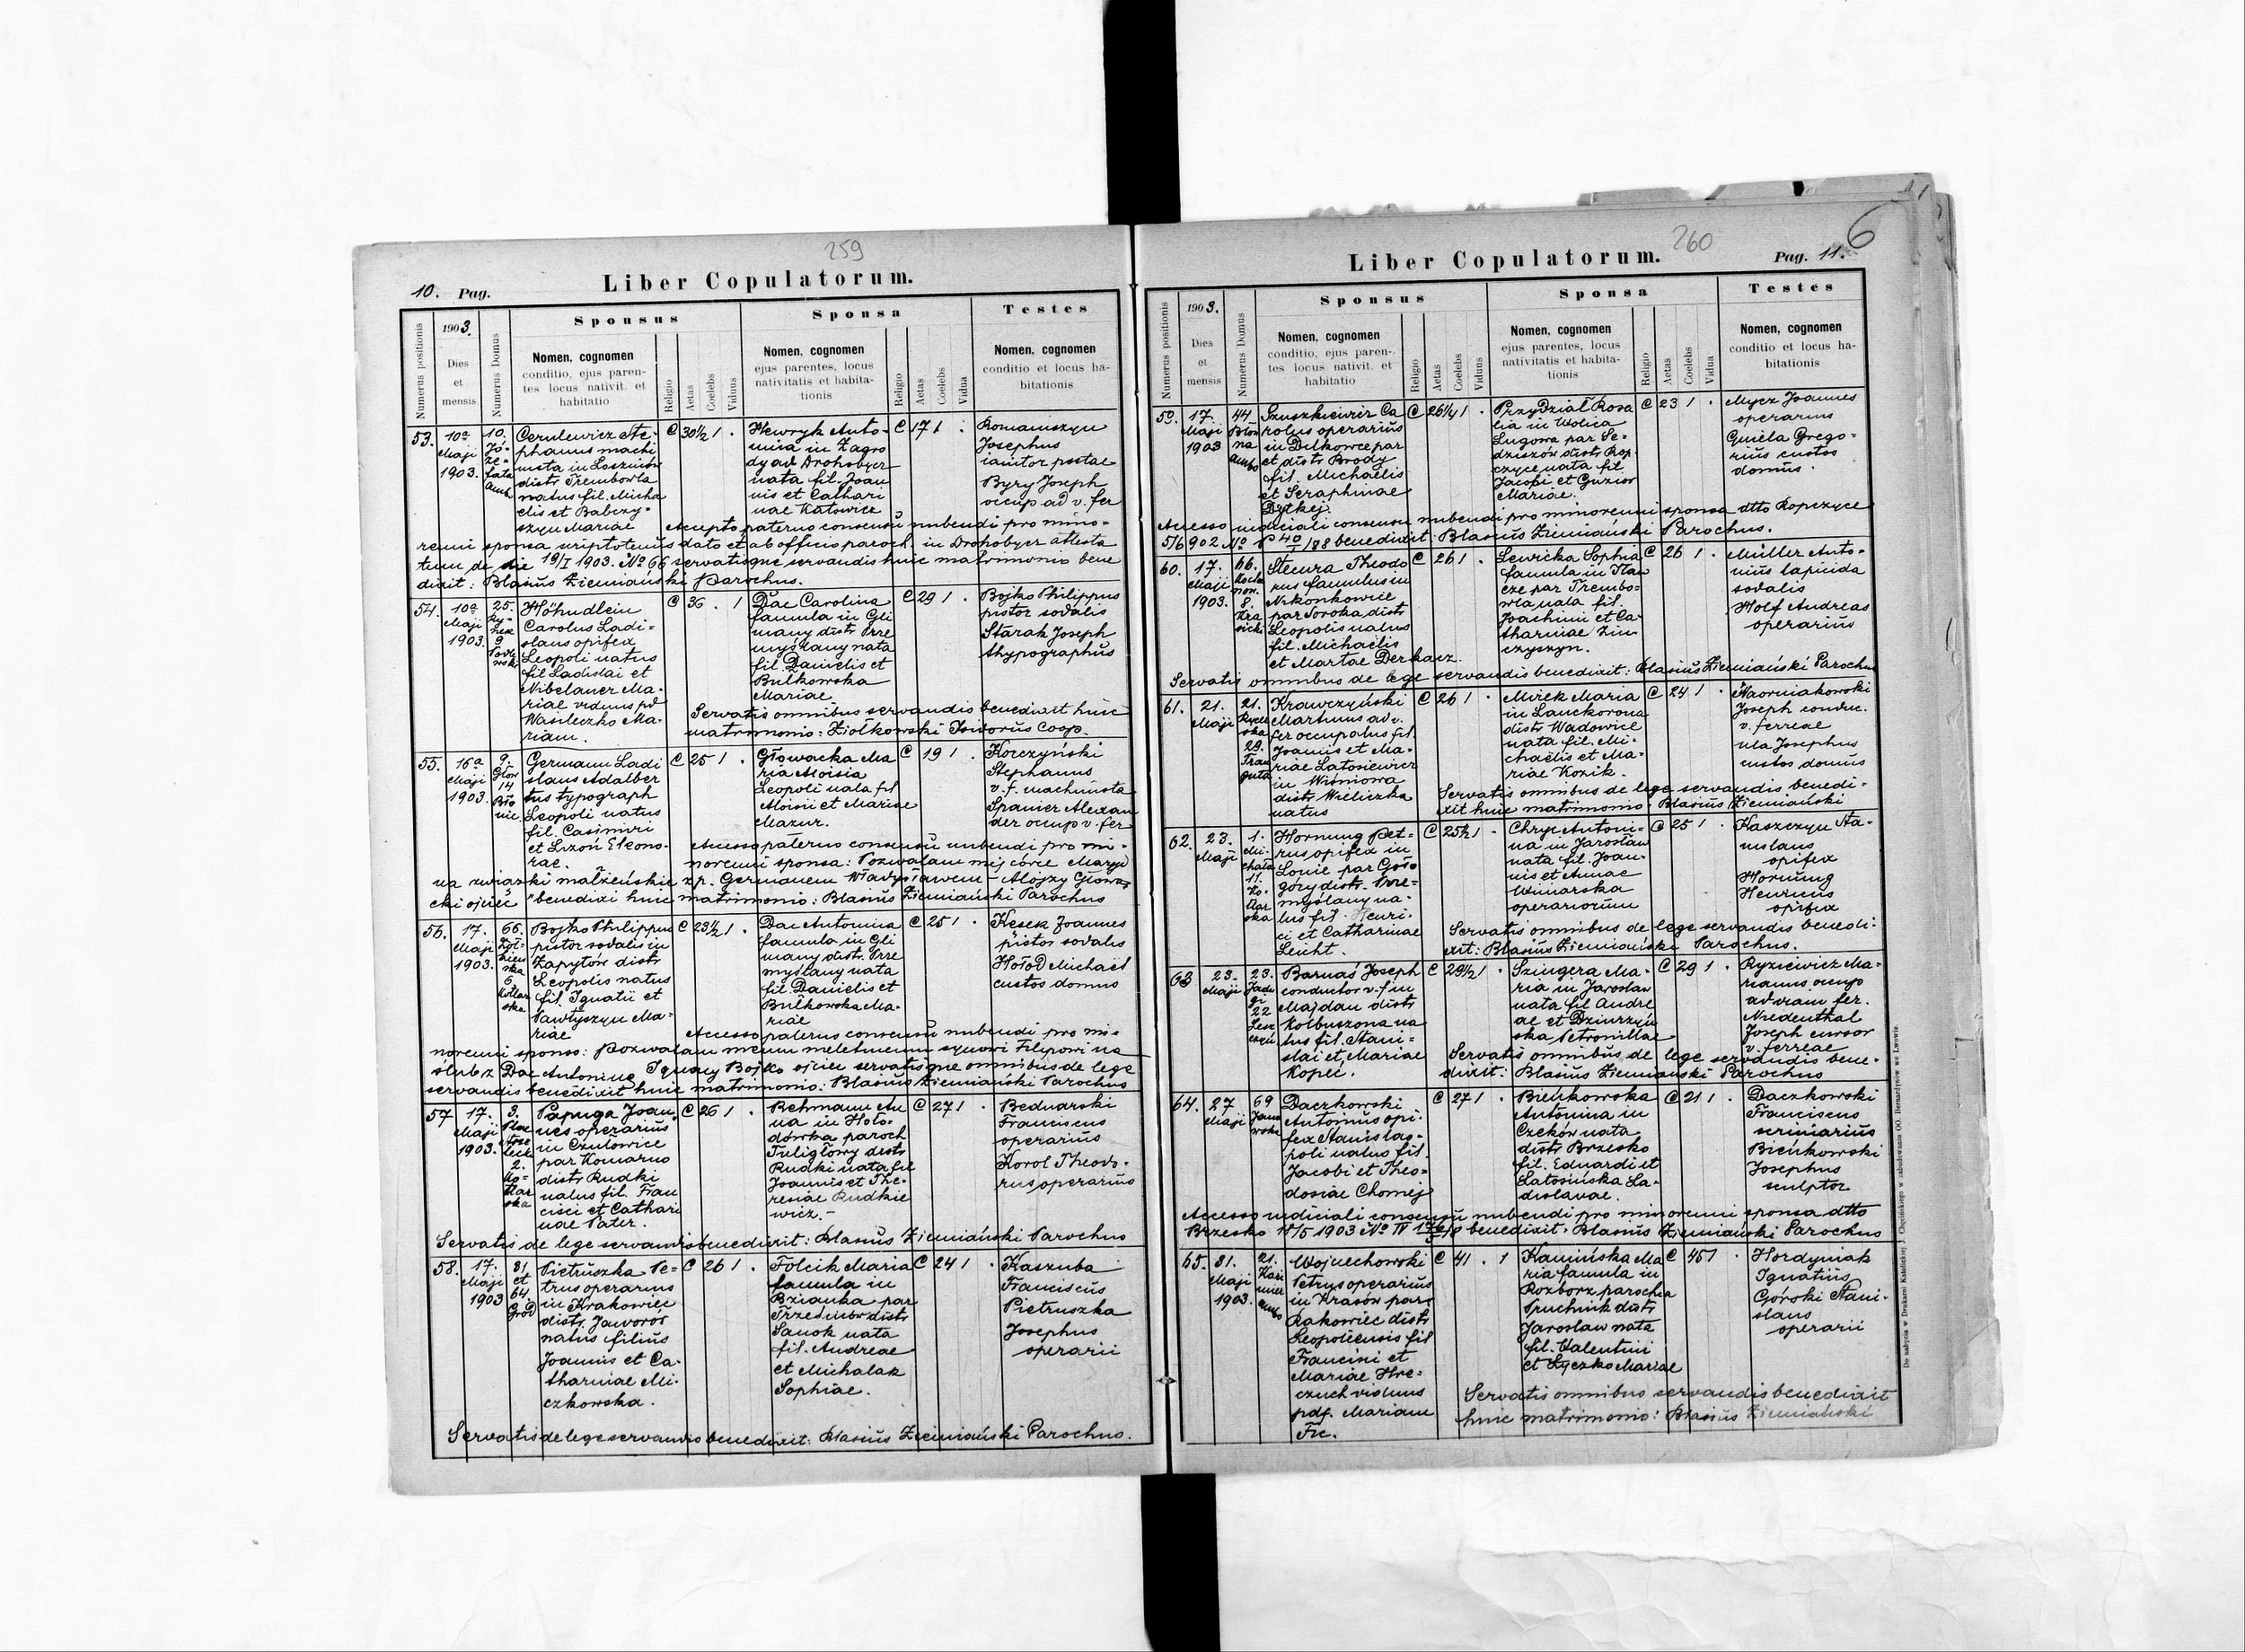 259
10. Pag.
Liber Copulatorum.
Numerus positionis
1903.
Dies
et
mensis
Numerus Domus
Sponsus
Nomen, cognomen
conditio, ejus paren-
tes locus nativit. et
habitatio
Religio
Aetas
Coelebs
Viduus
Sponsa
Nomen, cognomen
ejus parentes, locus
nativitatis et habita-
tionis
Religio
Aetas
Coelebs
Vidua
Testes
Nomen, cognomen
conditio et locus ha-
bitationis
53.
10a
Maji
1903.
10.
Jó-
ze-
fata
Amb.
Cerulewicz Ste-
phanus machi
nista in Łoszniów
distr Trembowla
natus fil. Micha
elis et Babczy-
szyn Mariae
C 30½ 1 .
Hewryk Anto-
nina in Zagro
dy ad Drohobycz
nata fil. Joan
nis et Cathari
nae Katowicz
C 17 1 .
Romaniszyn
Josephus
ianitor postae
Byry Joseph
occup ad v. fer
Accepto paterno consensu nubendi pro mino-
renni sponsa scriptotenus dato et ab officio paroch. in Drohobycz attesta
tum de die 19/I 1903. No 66 servatisque servandis huic matrimonio bene
dixit: Blasius Ziemiański Parochus.
54.
10a
Maji
1903.
25.
Ry-
nek
9
Höhndlein
Carolus Ladi-
slaus opifex
Leopoli natus
fil Ladislai et
Nibelauer Ma-
riae viduus pd
Wasileczko Ma-
riam.
C 36 . 1
Dac Carolina
famula in Gli
niany distr Prze
myślany nata
fil. Danielis et
Bulkowska
Mariae
C 29 1 .
Bojko Philippus
pistor sodalis
Starak Joseph
thypographus
Servatis omnibus servandis benedixit huic
matrimonio: Ziołkowski Isidorus Coop.
55.
16a
Maji
1903.
9.
Głow
14
Bło
nie.
Germann Ladi
slaus Adalber
tus typograph
Leopoli natus
fil. Casimiri
et Lizoń Eleono-
rae.
C 25 1 .
Głowacka Ma
ria Aloisia
Leopoli nata fil
Aloisii et Mariae
Mazur.
C 19 1 .
Korczyński
Stephanus
v. f. machinista
Spanier Alexan
der occup v. fer
Accesso paterno consensu nubendi pro mi-
norenni sponsa: Pozwalam mej córce Maryi
na związki małżeńskie z p. Germanem Władysławem – Alojzy Głowa
cki ojciec" benedixi huic matrimonio: Blasius Ziemiański Parochus
56.
17.
Maji
1903.
66.
Żół-
kiew
ska
6
Kotlar
ska
Bojko Philippus
pistor sodalis in
Zapytów distr
Leopolis natus
fil. Ignatii et
Pawłyszyn Ma-
riae
C 23½ 1 .
Dac Antonina
famula in Gli
niany distr. Prze
myślany nata
fil. Danielis et
Bulkowska Ma-
riae
C 25 1 .
Kesek Joannes
pistor sodalis
Hołod Michael
custos domus
Accesso paterno consensu nubendi pro mi-
norenni sponso: Pozwalam memu nieletniemu synowi Filipowi na
ślub z Dac Antoniną Ignacy Bojko ojciec servatisque omnibus de lege
servandis benedixit huic matrimonio: Blasius Ziemiański Parochus
57
17.
Maji
1903.
3.
Plac
Strze
lecki
2.
Ko-
tlar
ska
Papuga Joan-
nes operarius
in Czułowice
par Komarno
distr Rudki
natus fil. Fran
cisci et Cathari
nae Pater.
C 26 1 .
Rehmann An
na in Hoło-
dówka paroch
Tuligłowy distr
Rudki nata fil
Joannis et The-
resiae Rudkie
wicz.-
C 27 1 .
Bednarski
Franciscus
operarius
Korol Theodo-
rus operarius
Servatis de lege servandis benedixit: Blasius Ziemiański Parochus
58.
17.
Maji
1903
81.
et
64.
Gród
Pietruszka Pe-
trus operarius
in Krakowiec
distr. Jaworów
natus filius
Joannis et Ca-
tharinae Mi-
czkowska.
C 26 1 .
Folcik Maria
famula in
Bzianka par
Trześniów distr
Sanok nata
fil. Andreae
et Michalak
Sophiae.
C 24 1 .
Kaszuba
Franciscus
Pietruszka
Josephus
operarii
Servatis de lege servandis benedixit: Blasius Ziemiański Parochus.
260
6
Liber Copulatorum.
Pag. 11.
Numerus positionis
1903.
Dies
et
mensis
Numerus Domus
Sponsus
Nomen, cognomen
conditio, ejus paren-
tes locus nativit. et
habitatio
Religio
Aetas
Coelebs
Viduus
Sponsa
Nomen, cognomen
ejus parentes, locus
nativitatis et habita-
tionis
Religio
Aetas
Coelebs
Vidua
Testes
Nomen, cognomen
conditio et locus ha-
bitationis
59.
17.
Maji
1903
44
Błon
na
Ambo
Szuszkiewicz Ca
rolus operarius
in Ditkowce par
et distr Brody
fil. Michaelis
et Seraphinae
Dytkej.
C 26¼ 1 .
Przydział Rosa
lia in Wolica
Ługowa par Sę-
dziszów distr Rop
czyce nata fil
Jacobi et Guzior
Mariae.
C 23 1 .
Mycz Joannes
operarius
Guiela Grego-
rius custos
domus.
Accesso iudiciali consensu nubendi pro minorenni sponsa dtto Ropczyce
5/6 902 No P 40/1/88 benedixit: Blasius Ziemiański Parochus.
60.
17.
Maji
1903.
66.
8.
Kra
sicki
Stecura Theodo
rus famulus in
Nikonkowice
par Soroka distr
Leopolis natus
fil. Michaelis
et Martae Derkacz.
C 26 1 .
Lewicka Sophia
famula in Iław
cze par Trembo-
wla nata fil.
Joachimi et Ca-
tharinae Zin
czyszyn.
C 26 1 .
Müller Anto-
nius lapicida
sodalis
Holf Andreas
operarius
Servatis omnibus de lege servandis benedixit: Blasius Ziemiański Parochus
61.
21.
Maji
21.
29.
Trau
gutta
Krawczyński
Martinus ad v.
fer occupatus fil.
Joannis et Ma-
riae Latosiewicz
in Wiśniowa
distr Wieliczka
natus
C 26 1 .
Mirek Maria
in Lanckorona
distr Wadowice
nata fil. Mi-
chaelis et Ma-
riae Kozik.
C 24 1 .
Naorniakowski
Joseph conduc.
v. ferreae
Ula Josephus
custos domus
Servatis omnibus de lege servandis benedi-
xit huic matrimonio: Blasius Ziemiański
62.
23.
Maji
1.
Mi-
chała
11.
Ko-
tlar
ska
Hornung Pet-
rus opifex in
Lonie par Goło
góry distr. Prze-
myślany na-
tus fil. Henri-
ci et Catharinae
Leicht.
C 25½ 1 .
Chryc Antoni-
na in Jarosław
nata fil. Joan-
nis et Annae
Winiarska
operariorum
C 25 1 .
Kaszczyn Sta-
nislaus
opifex
Hornung
Henricus
opifex
Servatis omnibus de lege servandis benedi:
xit: Blasius Ziemiański Parochus.
63
23.
Maji
23.
Jadwi
gi
22
Lesz
czyń
Barnaś Joseph
conductor v. f in
Majdan distr
Kolbuszona na
tus fil. Stani-
slai et Mariae
Kopeć.
C 29½ 1 .
Szingera Ma-
ria in Jarosław
nata fil Andre
ae et Dziurzyń
ska Petronillae
C 29 1 .
Ryziewicz Ma-
rianus occup
ad viam fer.
Niedenthal
Joseph cursor
v. ferreae
Servatis omnibus de lege servandis bene-
dixit: Blasius Ziemiański Parochus
64.
27
Maji
69
Janow
ska
Daczkowski
Antonius opi-
fex Stanislao-
poli natus fil.
Jacobi et Theo-
dosiae Chomej
C 27 1 .
Bieńkowska
Antonina in
Czchów nata
distr Brzesko
fil. Eduardi et
Latosińska La-
dislavae.
C 21 1 .
Daczkowski
Franciscus
scriniarius
Bieńkowski
Josephus
sculptor
Accesso iudiciali consensu nubendi pro minorenni sponsa dtto
Brzesko 11/5 1903 No IV benedixit: Blasius Ziemiański Parochus
65.
31.
Maji
1903.
21.
Kazi
mierz
Ambo
Wojciechowski
Petrus operarius
in Krasów par.
Rakowiec distr
Leopoliensis fil
Francisci et
Mariae Hre-
czuch viduus
pdf. Mariam
Fic.
C 41 . 1
Kamińska Ma
ria famula in
Rozborz parochia
Pruchnik distr
Jarosław nata
fil. Valentini
et Łyczko Mariae
C 45 1 .
Hordyniak
Ignatius
Górski Stani-
slaus
operarii
Servatis omnibus servandis benedixit
huic matrimonio: Blasius Ziemiański
Do nabycia w Drukarni Katolickiej J. Chęcińskiego w zabudowaniu OO. Bernardynów we Lwowie.